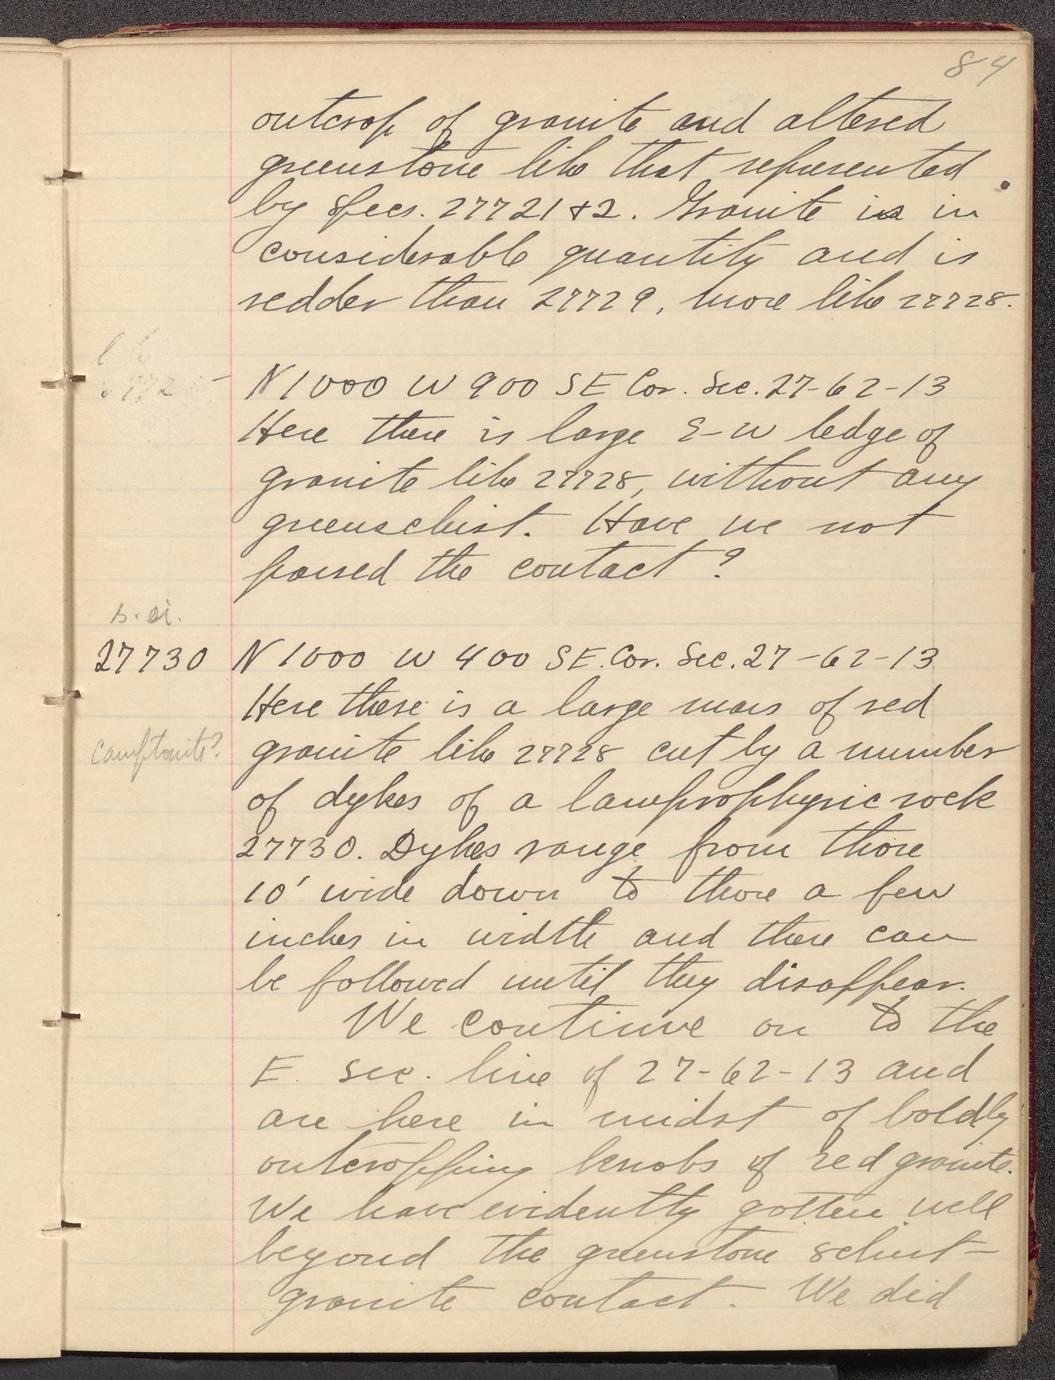 84
outcrop of granite and altered
greenstone like that represented
by specs. 27721 & 2. Granite is in
considerable quantity and is
redder than 27729, more like 27728.
N 1000 W 900 SE Cor. Sec. 27-62-13
Here there is large E-W ledge of
granite like 27728, without any
greenschist. Have we not
passed the contact?
s. si.
27730 N 1000 W 400 S.E. Cor. Sec. 27-62-13
Here there is a large mass of red
camptonite? granite like 27728 cut by a number
of dykes of a lamprophyric rock
27730. Dykes range from those
10' wide down to those a few
inches in width and these can
be followed until they disappear.
We continue on to the
E. sec. line of 27-62-13 and
are here in midst of boldly
outcropping knobs of red granite.
We have evidently gotten well
beyond the greenstone schist-
granite contact. We did